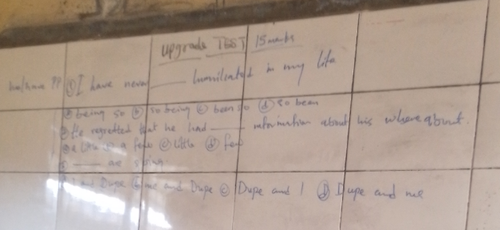 Upgrade TEST 15 marks
① I have never ___ humiliated in my life
ⓐ being so ⓑ so being ⓒ been so ⓓ so been
② He regretted that he had ___ information about his where about.
a few ⓒ little ⓓ few
___ are
me and Dupe ⓒ Dupe and I ⓓ Dupe and me